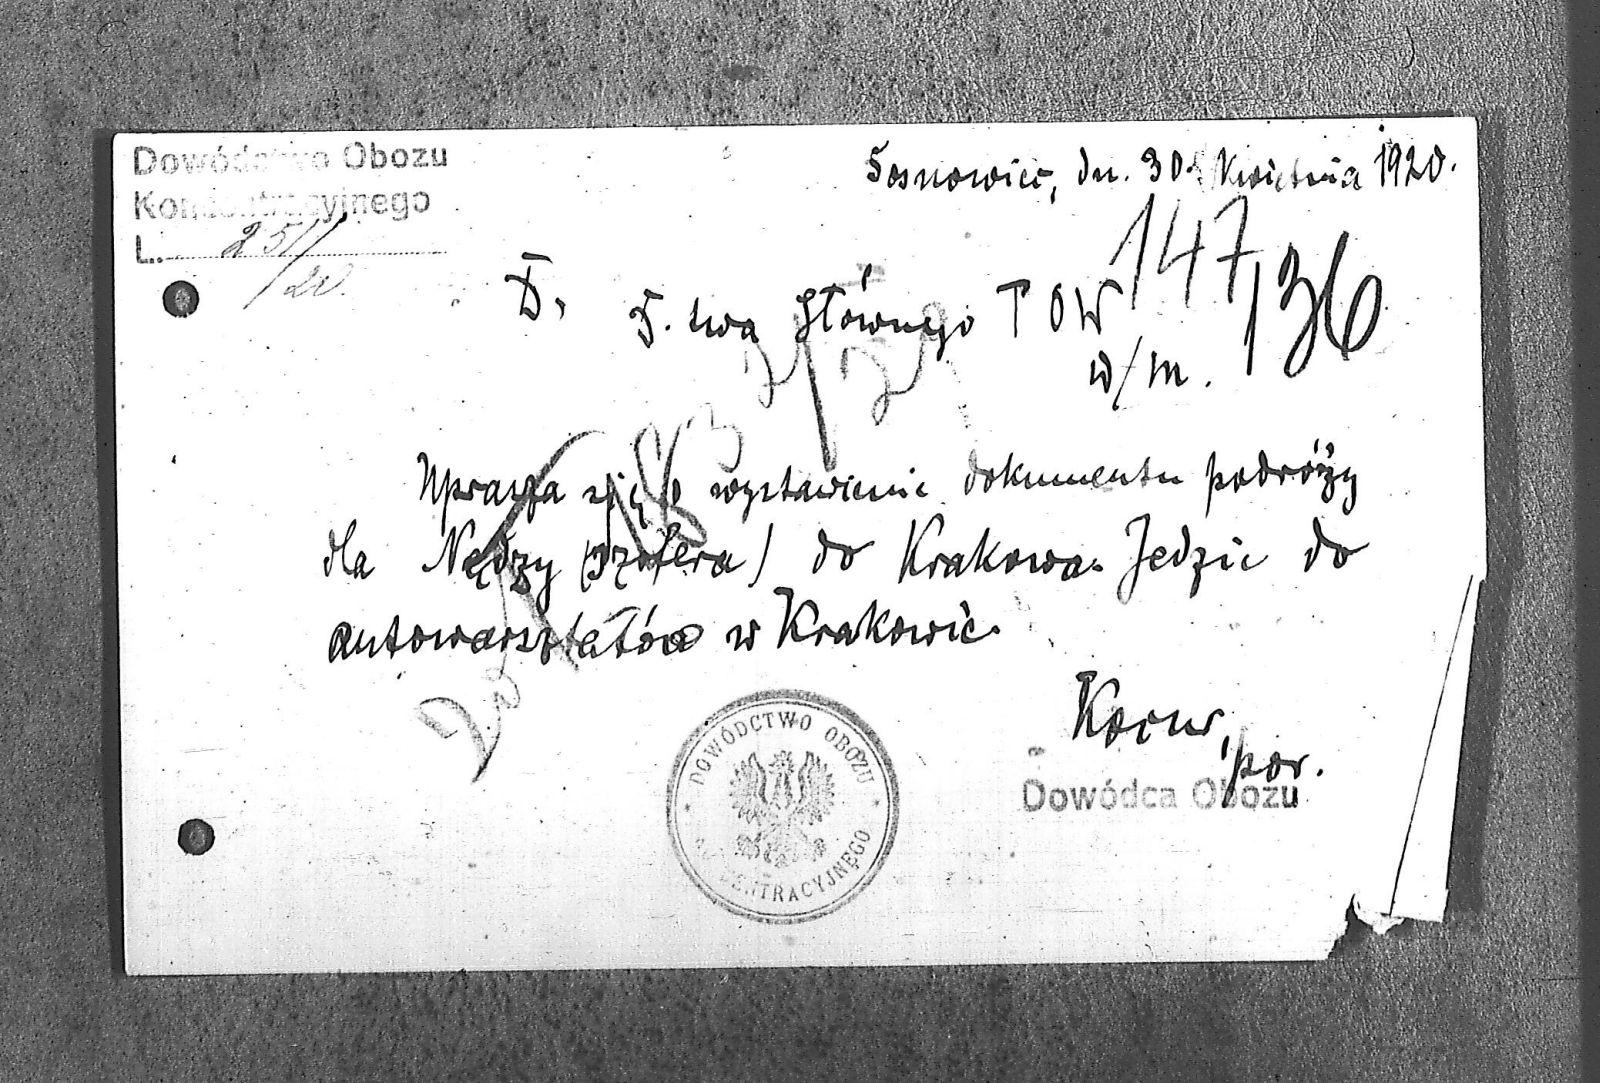 Dowództwo Obozu
Koncentracyjnego
L. 251/20.
Sosnowiec, dn. 30. Kwietnia 1920.
147/36
D. twa Głównego T O W
w/m.
Uprasza się o wystawienie dokumentu podróży
dla Nędzy (szofera) do Krakowa. Jedzie do
autowarsztatów w Krakowie.
por.
Dowódca Obozu
DOWÓDCTWO OBOZU
CENTRACYJNEGO